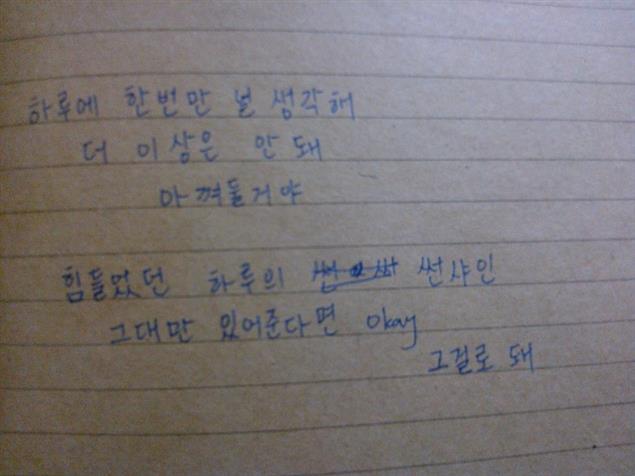 하루에 한번만 널 생각해
더 이상은 안 돼
아껴둘거야
힘들었던 하루의 썬샤인
그대만 있어준다면 okay
그걸로 돼